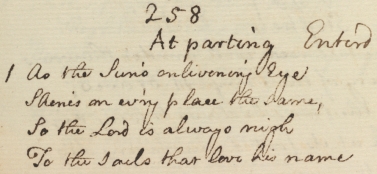 258
At parting Enterd
1 As the Sun's enlivening Eye
Shines on ev'ry place the same,
So the Lord is always nigh
To the Souls that love his name